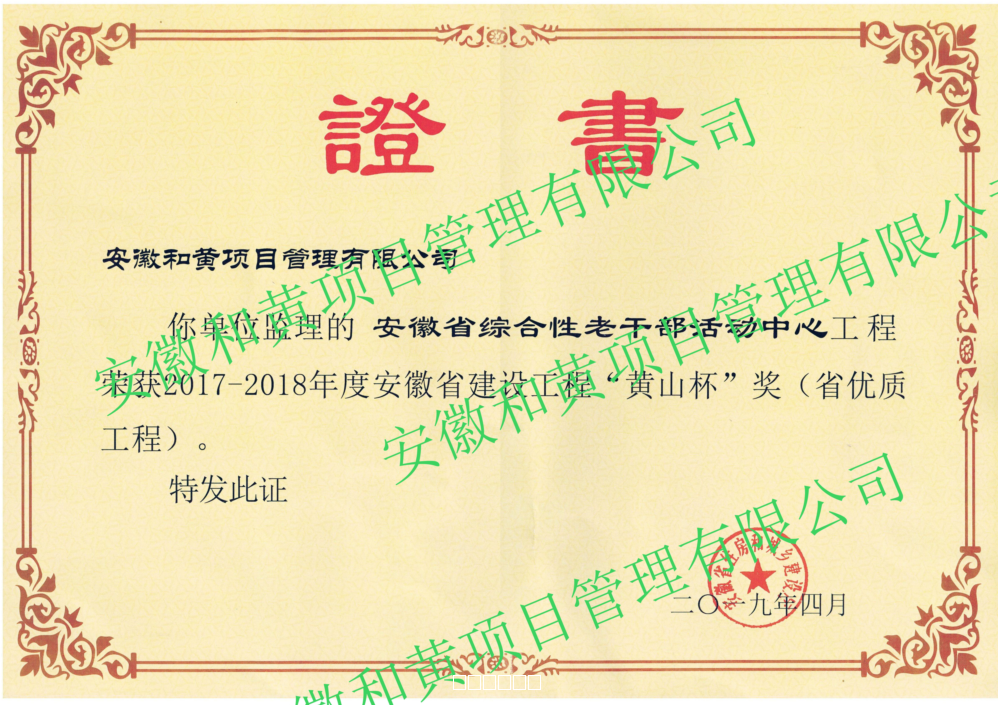 證書
安徽和黄项目管理有限公司
你单位监理的 安徽省综合性老干部活动中心工程
荣获2017-2018年度安徽省建设工程“黄山杯”奖（省优质
工程）。
特发此证
安徽省住房和城乡建设厅
二〇一九年四月
安徽和黄项目管理有限公司
安徽和黄项目管理有限公
徽和黄项目管理有限公司